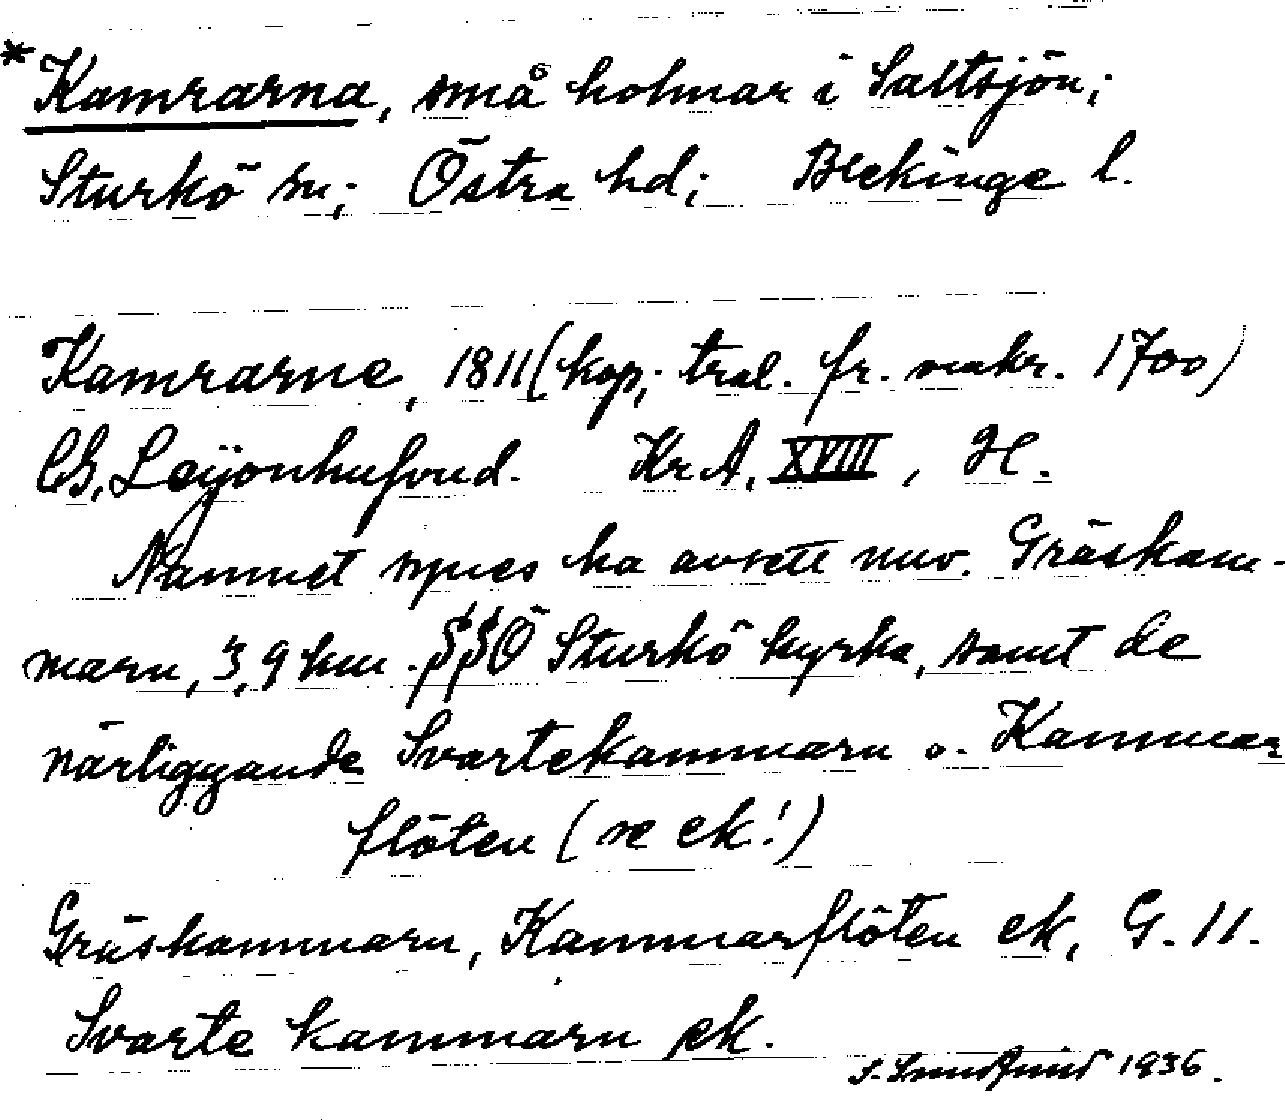 *Kamrarna, små holmar i Saltsjön;
Sturkö sn; Östra hd; Blekinge l.
Kamrarne, 1811 (kop; trol. fr. omkr. 1700)
CG. Leijonhufvud. Kr A, XVIII, H.
Namnet synes ha avsett nuv. Gräskam-
maru, 3,9 km. SSÖ Sturkö kyrka, samt de
närliggande Svartekammaru o. Kammar
flöten (se ek!)
Gräskammaru, Kammarflöten ek, G. 11.
Svarte kammaru ek.
1936.